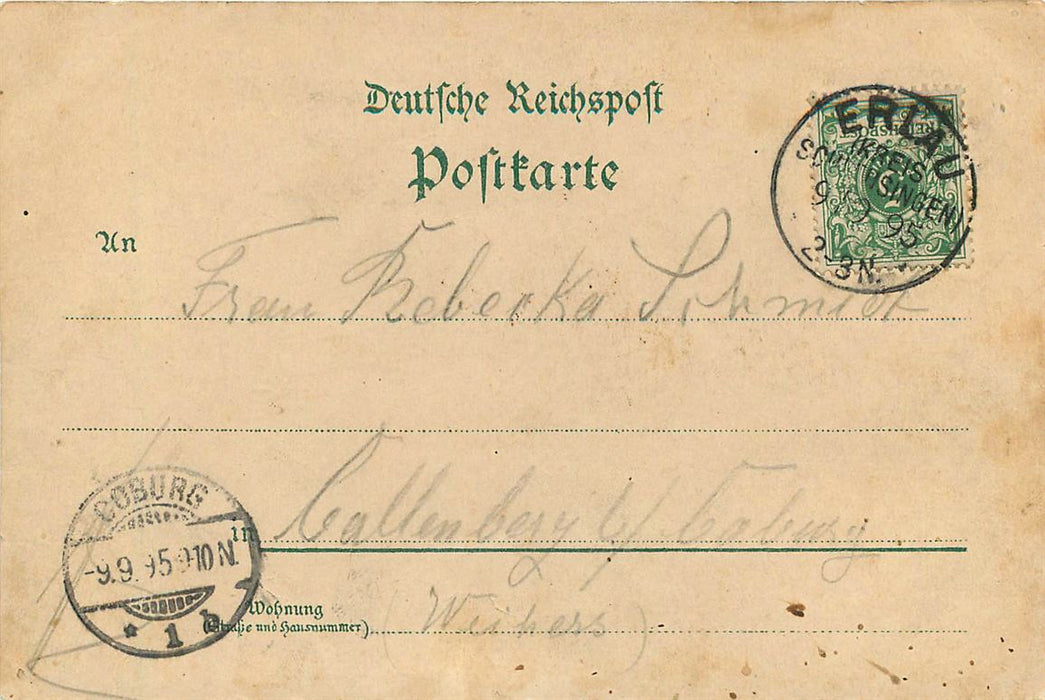 Deutsche Reichspost
Postkarte
REICHSPOST
5
ERLAU
(KREIS
SCHLEUSINGEN)
9 9 95
2-3N.
An
Frau Rebecka Schmidt
in Callenberg b/ Coburg
Wohnung
(Straße und Hausnummer)
(Weihers)
COBURG
-9.9.95 9-10 N.
* 1 b